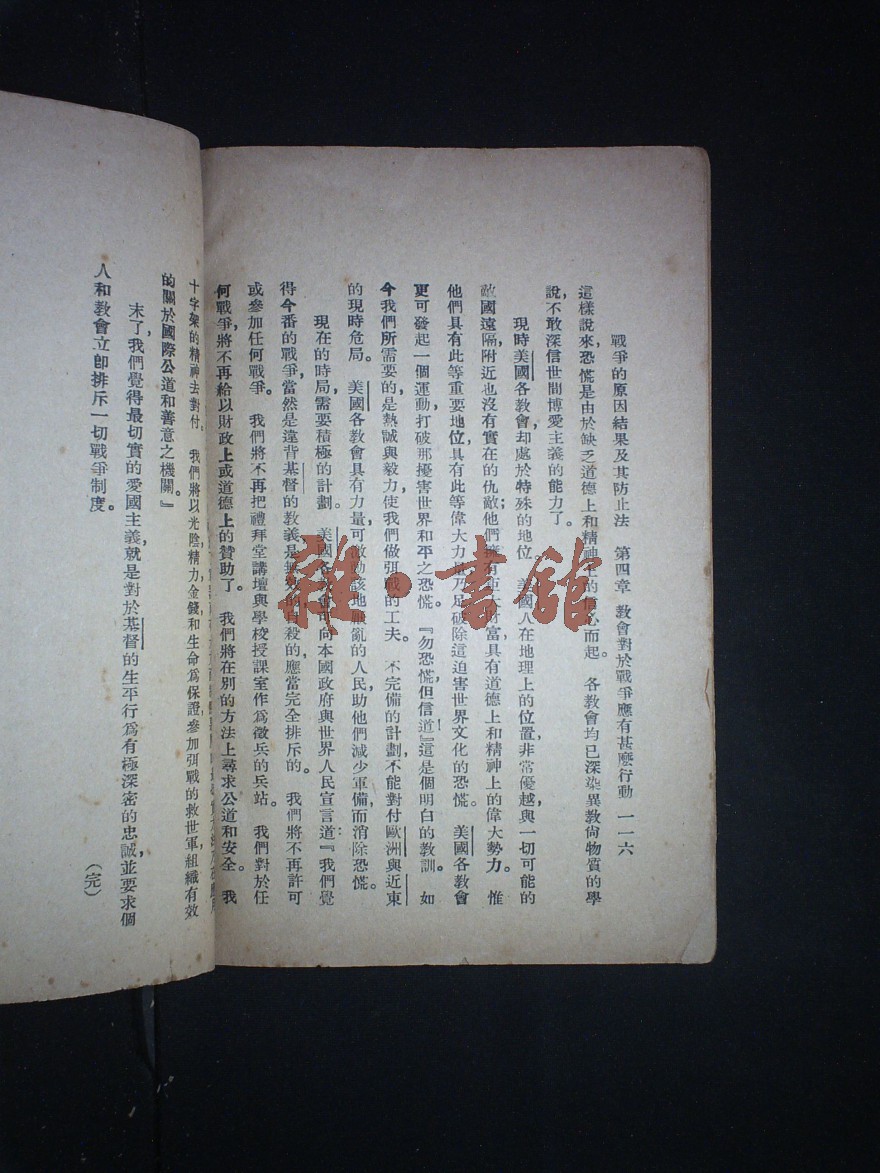 戰爭的原因結果及其防止法　第四章　教會對於戰爭應有甚麼行動　一一六
這樣說來，恐慌是由於缺乏道德上和精神上的信心而起。各教會均已深染異教尙物質的學
說，不敢深信世間博愛主義的能力了。
現時美國各教會，却處於特殊的地位。美國人在地理上的位置，非常優越，與一切可能的
敵國遠隔，附近也沒有實在的仇敵；他們擁有巨大財富，具有道德上和精神上的偉大勢力。惟
他們具有此等重要地位，具有此等偉大力量，乃足破除這迫害世界文化的恐慌。美國各教會
更可發起一個運動，打破那擾害世界和平之恐慌。『勿恐慌，但信道』這是個明白的教訓。如
今我們所需要的，是熱誠與毅力，使我們做弭戰的工夫。不完備的計劃，不能對付歐洲與近東
的現時危局。美國各教會具有力量，可激動該地 亂的人民，助他們減少軍備，而消除恐慌。
現在的時局，需要積極的計劃。美國各教會可向本國政府與世界人民宣言道：『我們覺
得今番的戰爭，當然是違背基督的教義，是 的自殺的，應當完全排斥的。我們將不再許可
或參加任何戰爭。我們將不再把禮拜堂講壇與學校授課室作爲徵兵的兵站。我們對於任
何戰爭，將不再給以財政上或道德上的贊助了。我們將在別的方法上尋求公道和安全。我
十字架的精神去對付。我們將以光陰精力金錢和生命爲保證，參加弭戰的救世軍，組織有效
的關於國際公道和善意之機關。』
末了，我們覺得最切實的愛國主義，就是對於基督的生平行爲有極深密的忠誠，並要求個
人和教會立卽排斥一切戰爭制度。
（完）
雜·書館